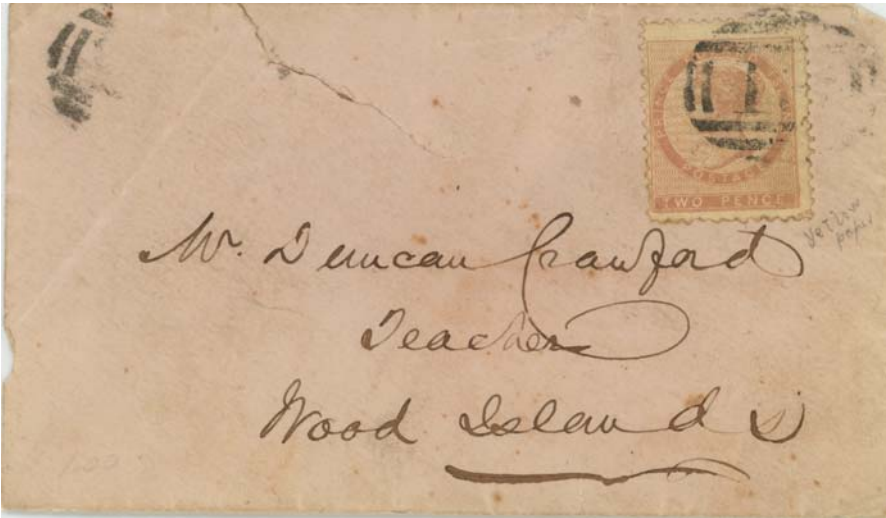 PRINCE
POSTAGE
TWO PENCE
yellow
paper
Mr. Duncan Crawford
Teacher
Wood Islands